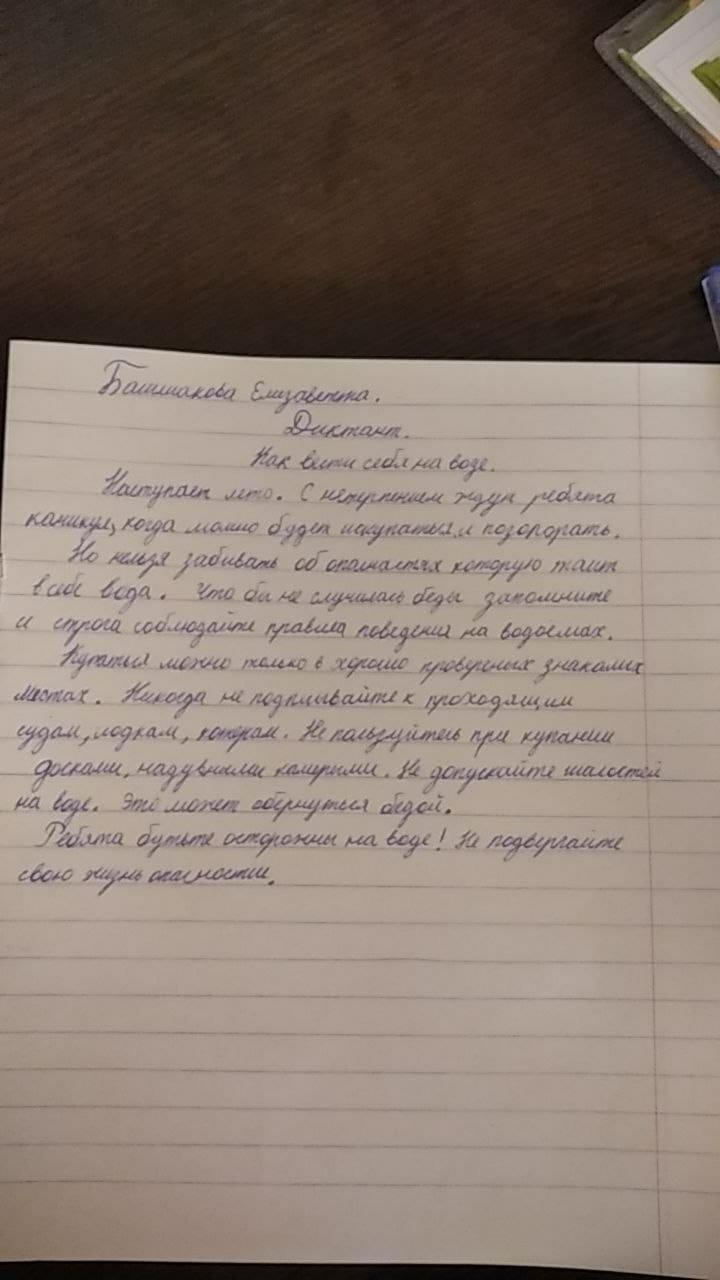 Башмакова Елизавета.
Диктант.
Как вести себя на воде.
Наступает лето. С нетерпением ждут ребята
каникул, когда можно будет искупаться и позогорать.
Но нельзя забивать об опастностях которую таит
в себе вода. Что бы не случилась беды запомните
и строга соблюдайте правила поведения на водоемах.
Купаться можно только в хорошо проверных знакомых
местах. Никогда не подплывайте к проходящим
судам, лодкам, которам. Не пользуйтесь при купании
досками, надувными камерыми. Не допускайте шалостей
на воде. Это может обернуться бедой.
Ребята бутьте осторожны на воде! Не подвергайте
свою жизнь опасностие.